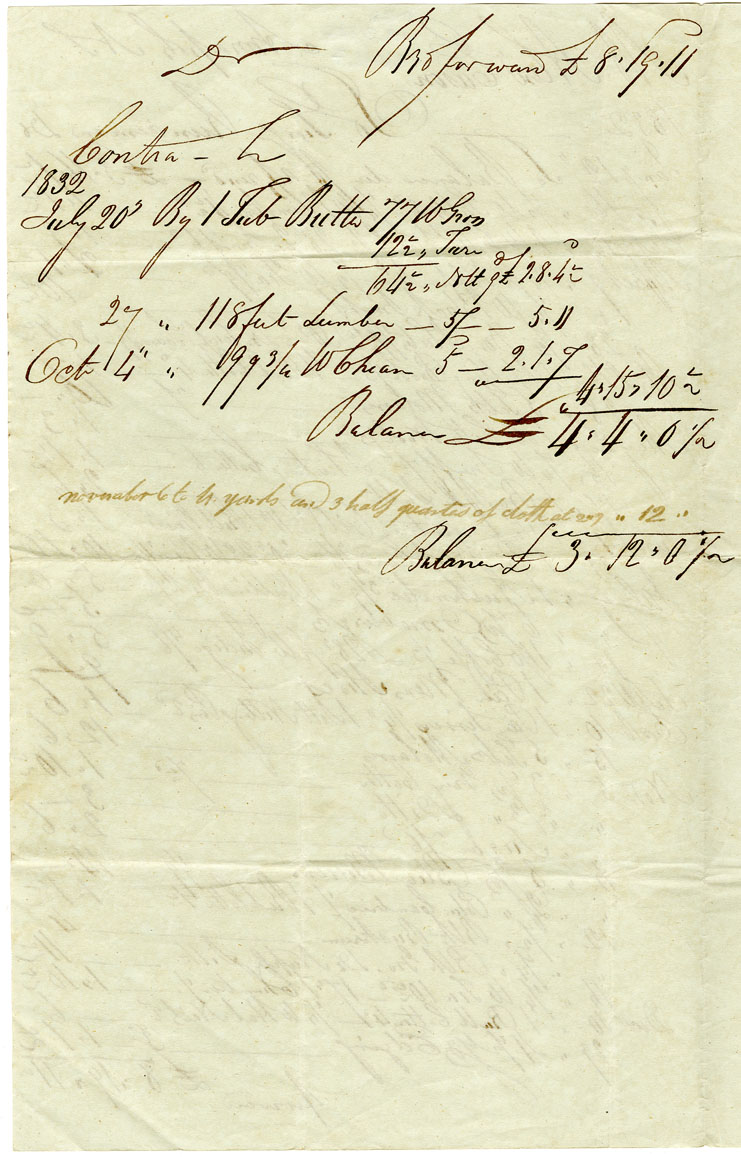 Dr Bro forward £ 8.19.11
Contra - Cr
1832
July 20th By 1 Tub Butter 77 lb Gros
12½ " Tare
64½ " Nett 9d £ 2.8.4½
27 " 118 feet Lumber — 5/ — 5.11
Oct 4th " 99 3/4 lb Chease 5 — 2.1.7
4 " 15 " 10½
Balance £ 4 " 4 " 0 1/2
november 6 to 4 yards and 3 half quarters of cloth at " 12 "
Balance £ 3 " 12 " 0 1/2